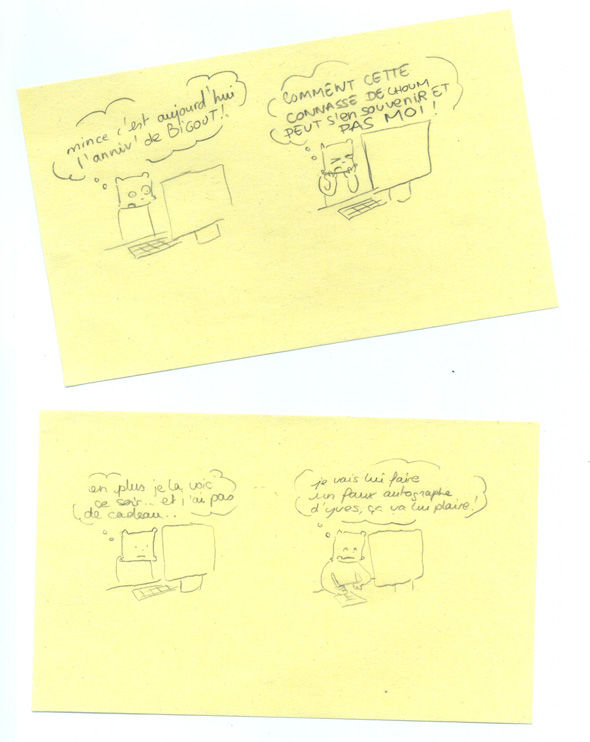 mince c'est aujourd'hui
l'anniv' de BIGOUT!
COMMENT CETTE
CONNASSE DE CHOUM
PEUT S'en SOUVENIR ET
PAS MOI!
en plus je la vois
ce soir.. et j'ai pas
de cadeau..
je vais lui faire
un faux autographe
d'yves, ça va lui plaire!